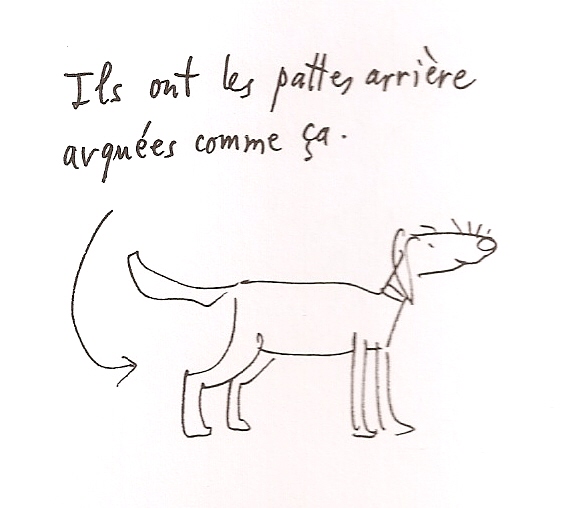 Ils ont les pattes arrière
arquées comme ça.